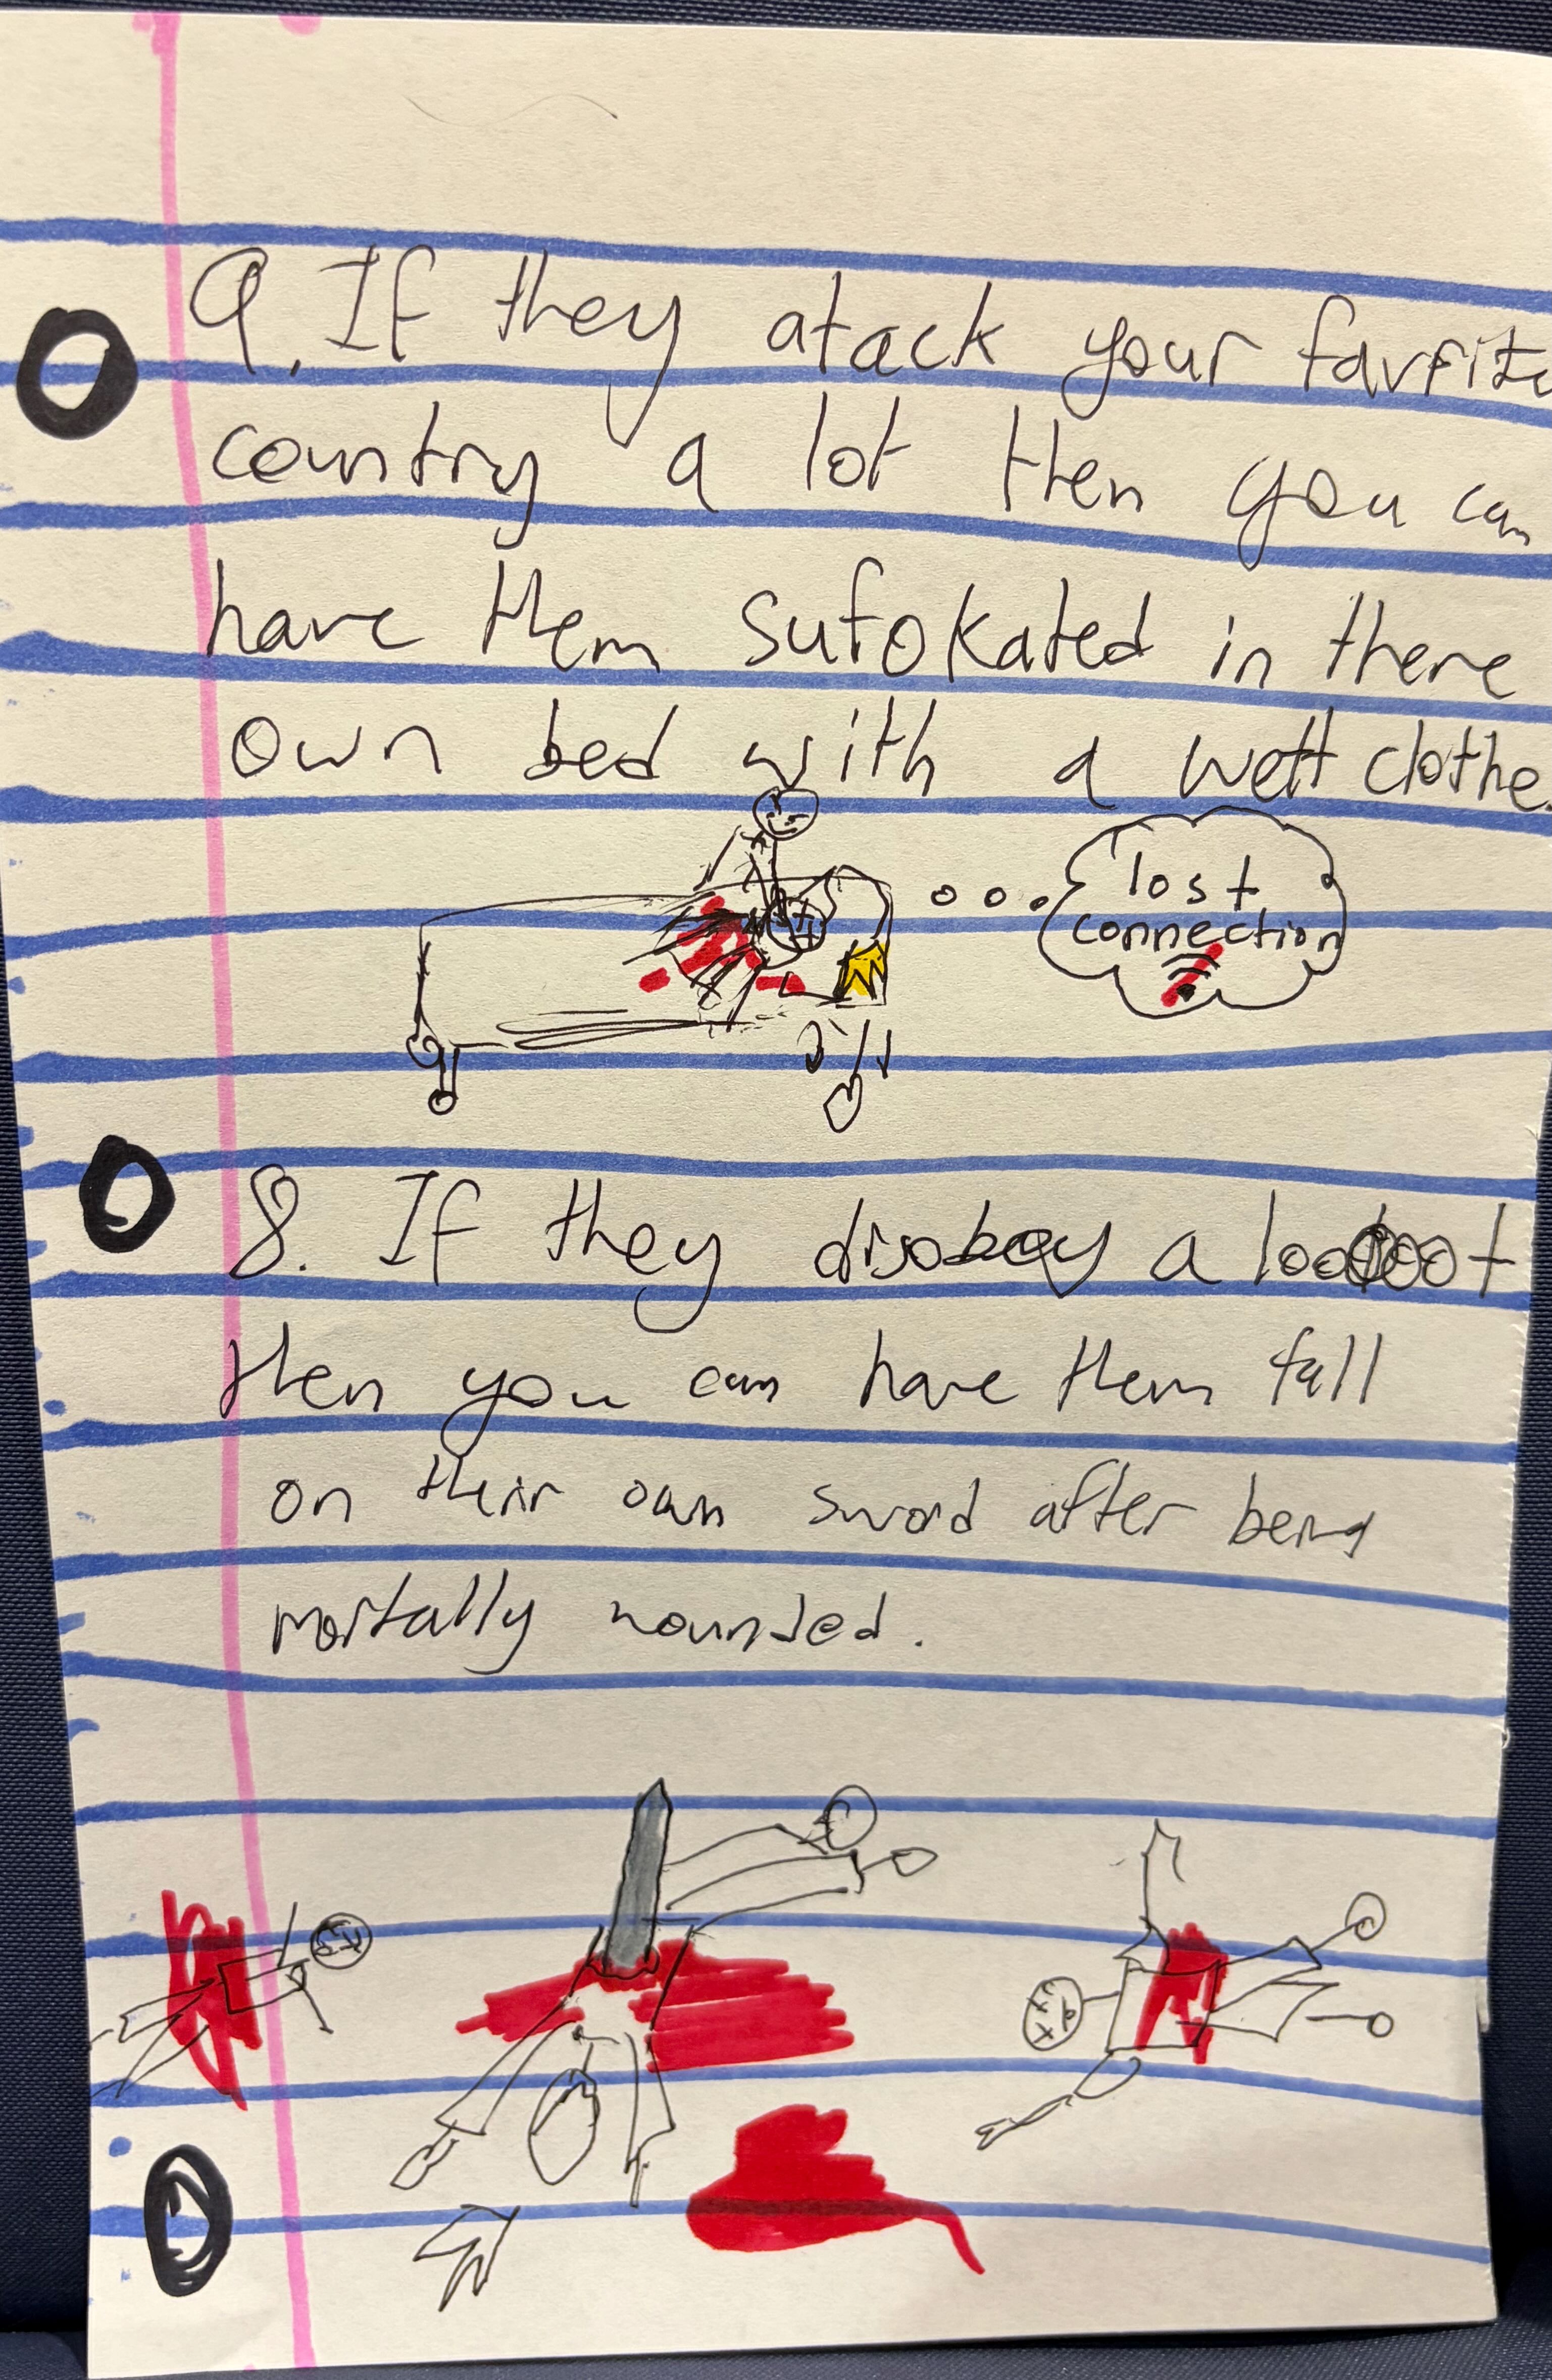 9. If they atack your favrite
country a lot then you can
have them sufokated in there
own bed with a wett clothe.
lost
connection
8. If they disobey a looooot
then you can have them fall
on their own sword after being
mortally wounded.